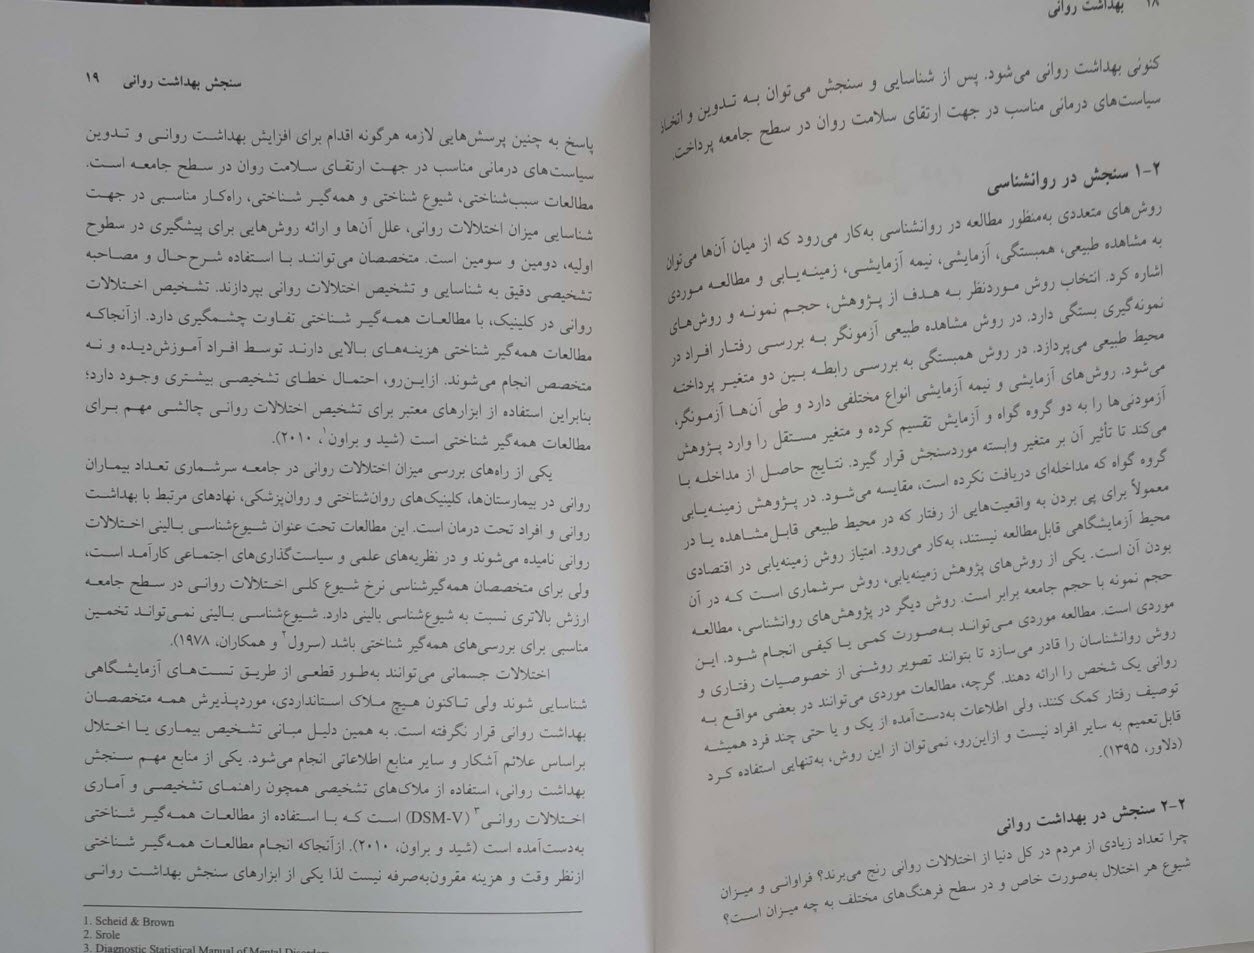 ۱۸ بهداشت روانی
کنونی بهداشت روانی می‌شود. پس از شناسایی و سنجش می‌توان به تدوین و اتخاذ
سیاست‌های درمانی مناسب در جهت ارتقای سلامت روان در سطح جامعه پرداخت.
۲-۱ سنجش در روانشناسی
روش‌های متعددی به‌منظور مطالعه در روانشناسی به‌کار می‌رود که از میان آن‌ها می‌توان
به مشاهده طبیعی، همبستگی، آزمایشی، نیمه آزمایشی، زمینه‌یابی و مطالعه موردی
اشاره کرد. انتخاب روش موردنظر به هدف از پژوهش، حجم نمونه و روش‌های
نمونه‌گیری بستگی دارد. در روش مشاهده طبیعی آزمونگر به بررسی رفتار افراد در
محیط طبیعی می‌پردازد. در روش همبستگی به بررسی رابطه بین دو متغیر پرداخته
می‌شود. روش‌های آزمایشی و نیمه آزمایشی انواع مختلفی دارد و طی آن‌ها آزمونگر،
آزمودنی‌ها را به دو گروه گواه و آزمایش تقسیم کرده و متغیر مستقل را وارد پژوهش
می‌کند تا تأثیر آن بر متغیر وابسته موردسنجش قرار گیرد. نتایج حاصل از مداخله با
گروه گواه که مداخله‌ای دریافت نکرده است، مقایسه می‌شود. در پژوهش زمینه‌یابی
معمولاً برای پی بردن به واقعیت‌هایی از رفتار که در محیط طبیعی قابل‌مشاهده یا در
محیط آزمایشگاهی قابل‌مطالعه نیستند، به‌کار می‌رود. امتیاز روش زمینه‌یابی در اقتصادی
بودن آن است. یکی از روش‌های پژوهش زمینه‌یابی، روش سرشماری است که در آن
حجم نمونه با حجم جامعه برابر است. روش دیگر در پژوهش‌های روانشناسی، مطالعه
موردی است. مطالعه موردی می‌تواند به‌صورت کمی یا کیفی انجام شود. این
روش روانشناسان را قادر می‌سازد تا بتوانند تصویر روشنی از خصوصیات رفتاری و
روانی یک شخص را ارائه دهند. گرچه، مطالعات موردی می‌توانند در بعضی مواقع به
توصیف رفتار کمک کنند، ولی اطلاعات به‌دست‌آمده از یک و یا حتی چند فرد همیشه
قابل‌تعمیم به سایر افراد نیست و ازاین‌رو، نمی‌توان از این روش، به‌تنهایی استفاده کرد
(دلاور، ۱۳۹۵).
۲-۲ سنجش در بهداشت روانی
چرا تعداد زیادی از مردم در کل دنیا از اختلالات روانی رنج می‌برند؟ فراوانی و میزان
شیوع هر اختلال به‌صورت خاص و در سطح فرهنگ‌های مختلف به چه میزان است؟
سنجش بهداشت روانی ۱۹
پاسخ به چنین پرسش‌هایی لازمه هرگونه اقدام برای افزایش بهداشت روانی و تدوین
سیاست‌های درمانی مناسب در جهت ارتقای سلامت روان در سطح جامعه است.
مطالعات سبب‌شناختی، شیوع شناختی و همه‌گیر شناختی، راه‌کار مناسبی در جهت
شناسایی میزان اختلالات روانی، علل آن‌ها و ارائه روش‌هایی برای پیشگیری در سطوح
اولیه، دومین و سومین است. متخصصان می‌توانند با استفاده شرح‌حال و مصاحبه
تشخیصی دقیق به شناسایی و تشخیص اختلالات روانی بپردازند. تشخیص اختلالات
روانی در کلینیک، با مطالعات همه‌گیر شناختی تفاوت چشمگیری دارد. ازآنجاکه
مطالعات همه‌گیر شناختی هزینه‌های بالایی دارند توسط افراد آموزش‌دیده و نه
متخصص انجام می‌شوند. ازاین‌رو، احتمال خطای تشخیصی بیشتری وجود دارد؛
بنابراین استفاده از ابزارهای معتبر برای تشخیص اختلالات روانی چالشی مهم برای
مطالعات همه‌گیر شناختی است (شید و براون۱، ۲۰۱۰).
یکی از راه‌های بررسی میزان اختلالات روانی در جامعه سرشماری تعداد بیماران
روانی در بیمارستان‌ها، کلینیک‌های روان‌شناختی و روان‌پزشکی، نهادهای مرتبط با بهداشت
روانی و افراد تحت درمان است. این مطالعات تحت عنوان شیوع‌شناسی بالینی اختلالات
روانی نامیده می‌شوند و در نظریه‌های علمی و سیاست‌گذاری‌های اجتماعی کارآمد است،
ولی برای متخصصان همه‌گیرشناسی نرخ شیوع کلی اختلالات روانی در سطح جامعه
ارزش بالاتری نسبت به شیوع‌شناسی بالینی دارد. شیوع‌شناسی بالینی نمی‌تواند تخمین
مناسبی برای بررسی‌های همه‌گیر شناختی باشد (سرول۲ و همکاران، ۱۹۷۸).
اختلالات جسمانی می‌توانند به‌طور قطعی از طریق تست‌های آزمایشگاهی
شناسایی شوند ولی تاکنون هیچ ملاک استانداردی، موردپذیرش همه متخصصان
بهداشت روانی قرار نگرفته است. به همین دلیل مبانی تشخیص بیماری یا اختلال
براساس علائم آشکار و سایر منابع اطلاعاتی انجام می‌شود. یکی از منابع مهم سنجش
بهداشت روانی، استفاده از ملاک‌های تشخیصی همچون راهنمای تشخیصی و آماری
اختلالات روانی۳ (DSM-V) است که با استفاده از مطالعات همه‌گیر شناختی
به‌دست‌آمده است (شید و براون، ۲۰۱۰). ازآنجاکه انجام مطالعات همه‌گیر شناختی
ازنظر وقت و هزینه مقرون‌به‌صرفه نیست لذا یکی از ابزارهای سنجش بهداشت روانی
1. Scheid & Brown
2. Srole
3. Diagnostic Statistical Manual of Mental Disorders